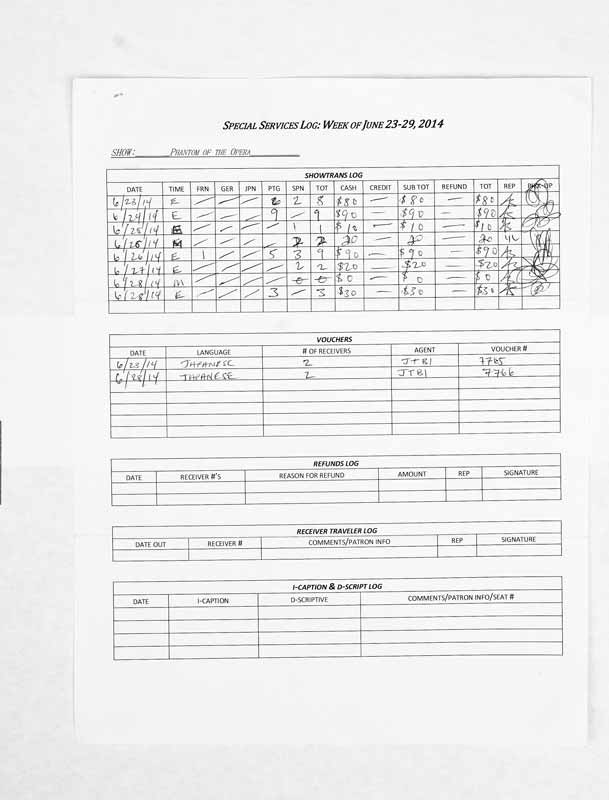 SPECIAL SERVICES LOG: WEEK OF JUNE 23-29, 2014
SHOW: PHANTOM OF THE OPERA
SHOWTRANS LOG
DATE TIME FRN GER JPN PTG SPN TOT CASH CREDIT SUB TOT REFUND TOT REP
6/23/14 E — — — 6 2 8 $80 — $80 — $80
6/24/14 E — — — 9 — 9 $90 — $90 — $90
6/25/14 E — — — — 1 1 $10 — $10 — $10
6/25/14 M — — — — 2 2 20 — 20 — 20
6/26/14 E 1 — — 5 3 9 $90 — $90 — $90
6/27/14 E — — — — 2 2 $20 — $20 — $20
6/28/14 M — — — — 0 0 $0 — $0 — $0
6/28/14 E — — — 3 — 3 $30 — $30 — $30
VOUCHERS
DATE LANGUAGE # OF RECEIVERS AGENT VOUCHER #
6/23/14 JAPANESE 2 JTBI 7765
6/28/14 JAPANESE 2 JTBI 7766
REFUNDS LOG
DATE RECEIVER #'S REASON FOR REFUND AMOUNT REP SIGNATURE
RECEIVER TRAVELER LOG
DATE OUT RECEIVER # COMMENTS/PATRON INFO REP SIGNATURE
I-CAPTION & D-SCRIPT LOG
DATE I-CAPTION D-SCRIPTIVE COMMENTS/PATRON INFO/SEAT #